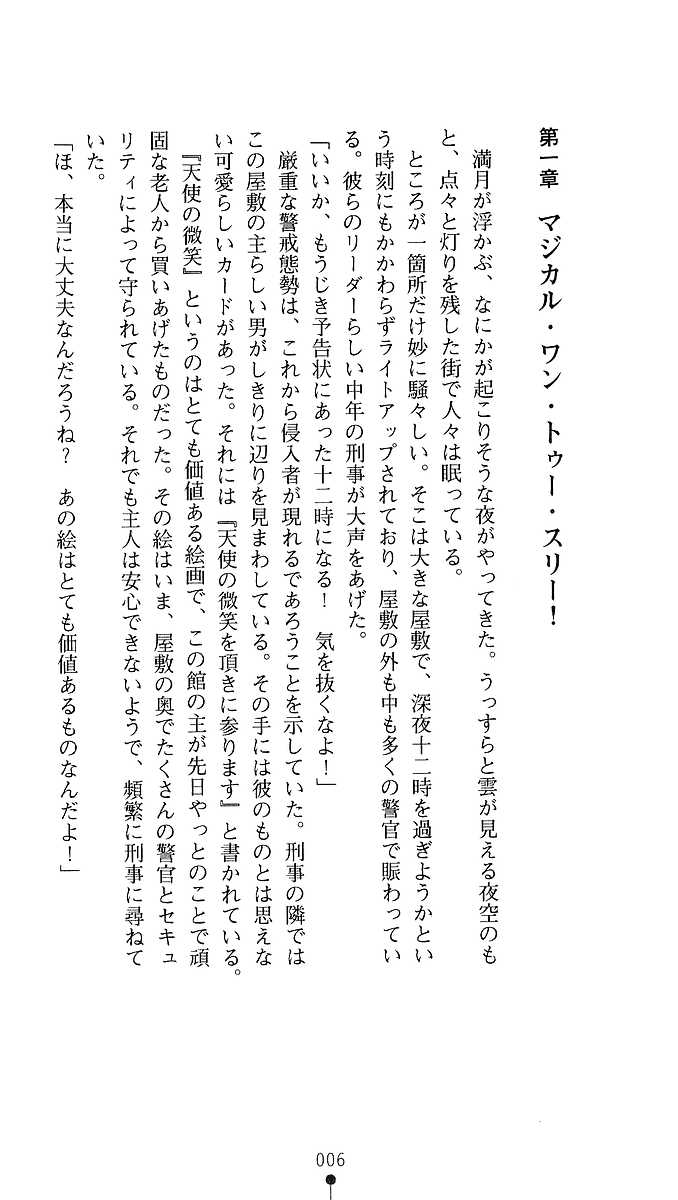 第一章　マジカル・ワン・トゥー・スリー！
　満月が浮かぶ、なにかが起こりそうな夜がやってきた。うっすらと雲が見える夜空のも
と、点々と灯りを残した街で人々は眠っている。
　ところが一箇所だけ妙に騒々しい。そこは大きな屋敷で、深夜十二時を過ぎようかとい
う時刻にもかかわらずライトアップされており、屋敷の外も中も多くの警官で賑わってい
る。彼らのリーダーらしい中年の刑事が大声をあげた。
「いいか、もうじき予告状にあった十二時になる！　気を抜くなよ！」
　厳重な警戒態勢は、これから侵入者が現れるであろうことを示していた。刑事の隣では
この屋敷の主らしい男がしきりに辺りを見まわしている。その手には彼のものとは思えな
い可愛らしいカードがあった。それには『天使の微笑を頂きに参ります』と書かれている。
　『天使の微笑』というのはとても価値ある絵画で、この館の主が先日やっとのことで頑
固な老人から買いあげたものだった。その絵はいま、屋敷の奥でたくさんの警官とセキュ
リティによって守られている。それでも主人は安心できないようで、頻繁に刑事に尋ねて
いた。
「ほ、本当に大丈夫なんだろうね？　あの絵はとても価値あるものなんだよ！」
006